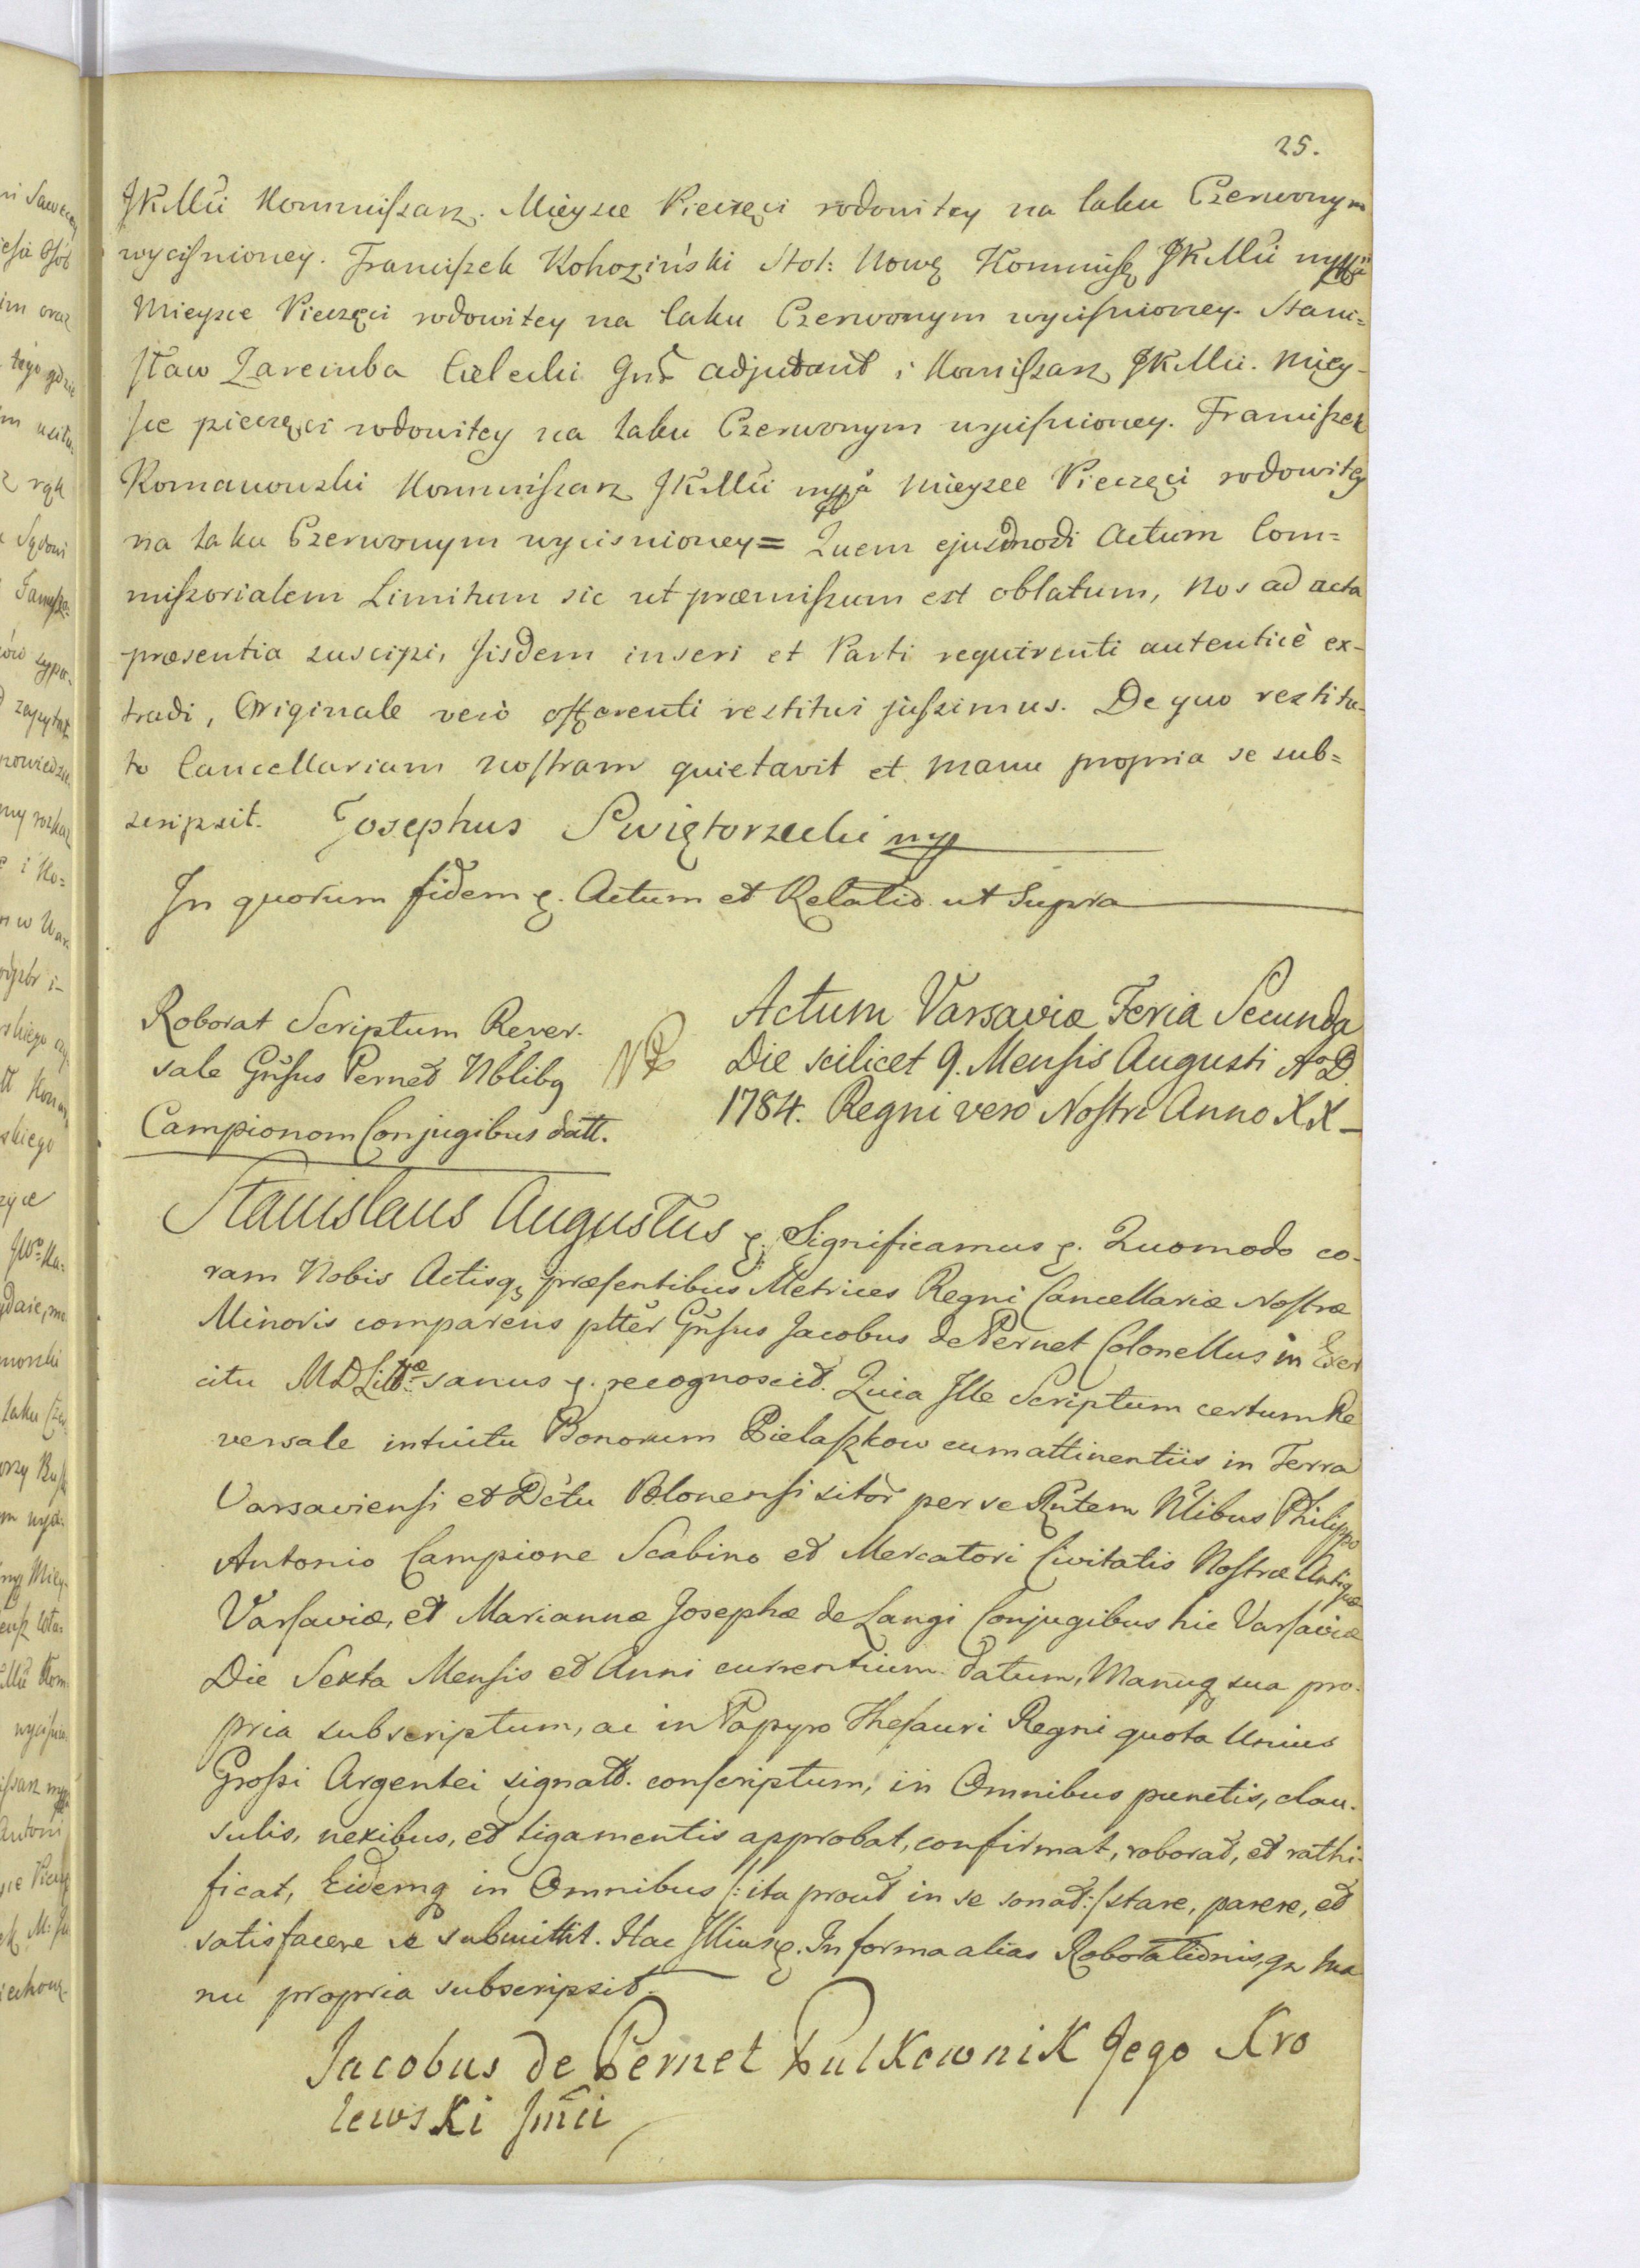 25.
JKMci Kommissarz. Mieysce Pieczęci rodowitey na laku Czerwonym
wyciſnioney. Franciszek Kohoziński Stol: Nowę Kommissę JKMci mppa
Mieysce Pieczęci rodowitey na laku Czerwonym wyciſnioney. Stani=
ſław Zaremba Cielecki Gnł adjutant i Komiſsarz JKMci. Miey-
ſce pieczęci rodowitey na laku Czerwonym wyciſnioney. Franciſzek
Romanowski Kommiſsarz JKMci mppa Mieysce Pieczęci rodowitey
na laku Czerwonym wycisnioney= Quem ejusdmodi Actum Com=
miſsorialem Limitum sic ut præmiſsum est oblatum, Nos ad acta
præsentia suscipi, Iisdem inseri et Parti requirenti autenticè ex-
tradi, Originale verò offerenti restitui juſsimus. De quo restitu-
to Cancellariam noſtram quietavit et manu propria se sub=
scripsit. Josephus Swiętorzecki mp
In quorum fidem ę. Actum et Relatio ut Supra
Roborat Scriptum Rever.
sale Gnſus Pernet Nblibq
Campionom Conjugibus datt.
Actum Varsaviæ Feria Secunda
Die scilicet 9. Menſis Augusti A°D.
1784. Regni vero Noſtri Anno XX
Stanislaus Augustus ę. Significamus ę. Quomodo co-
ram Nobis Actisqȝ præſentibus Metrices Regni Cancellariæ Noſtræ
Minoris comparens pltter Gnſus Jacobus de Pernet Colonellus in Exer
citu MDLittæ sanus ę. recognoscit. Quia Ille Scriptum certum Re
versale intuitu Bonorum Bielaſzkow cum attinentiis in Terra
Varsaviensi et Dctu Blonenſi sitor per se Rntem Nlibus Philippo
Antonio Campione Scabino et Mercatori Civitatis Noſtræ Antiquæ
Varſaviæ, et Mariannæ Josephæ de Langi Conjugibus hic Varſaviæ
Die Sexta Menſis et Anni currentium datum, Manuq sua pro.
pria subscriptum, ac in Papyro Theſauri Regni quota Unius
Groſsi Argentei signatt. conſcriptum, in Omnibus punctis, clau.
sulis, nexibus, et ligamentis approbat, confirmat, roborat, et rathi.
ficat, Eidemq in Omnibus /: ita prout in se sonat:/ stare, parere, et
satisfacere se submittit. Hac Illius ę. In forma alias Roborationis, qz Ma
nu propria subscripsit.
Jacobus de Pernet Pulkownik Jego Kro
lewski Jmci